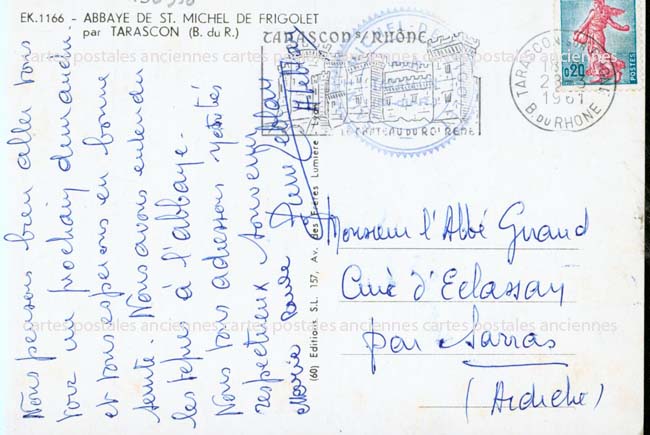 EK.1166 - ABBAYE DE ST. MICHEL DE FRIGOLET
par TARASCON (B. du R.)
TARASCON s/ RHÔNE
LE CHATEAU DU ROI RENE
TARASCON
23-3
1961
B. DU RHONE
0,20
POSTES
Nous pensons bien aller vous
voir un prochain dimanche
et vous espérons en bonne
santé. Nous avons entendu
les vêpres à l'abbaye.
Nous vous adressons
respectueux souvenirs
Marie
(60) Editions S.L. 157, Av. des Frères Lumière
Monsieur l'Abbé Giraud
Curé d'Eclassan
par Sarras
(Ardèche)
cartes postales anciennes cartes postales anciennes cartes postales anciennes
cartes postales anciennes cartes postales anciennes cartes postales anciennes